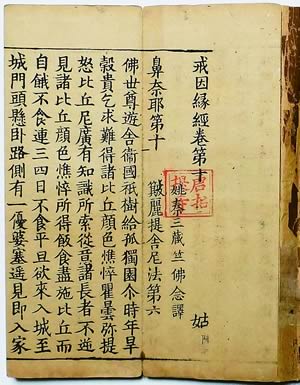 戒因緣經卷第十 姑
姚秦三藏竺佛念譯
麗提舍尼法第六
鼻奈耶第十
佛世尊遊舍衛國祇樹給孤獨園尒時年旱
穀貴乞求難得諸比丘顏色憔悴瞿曇弥提
怒比丘尼廣有知識所索從意諸長者不逆
見諸比丘顏色憔悴所得飯食盡施比丘而
自餓不食連三四日不食平旦欲來入城至
城門頭懸卦路側有一優婆塞遙見即入家